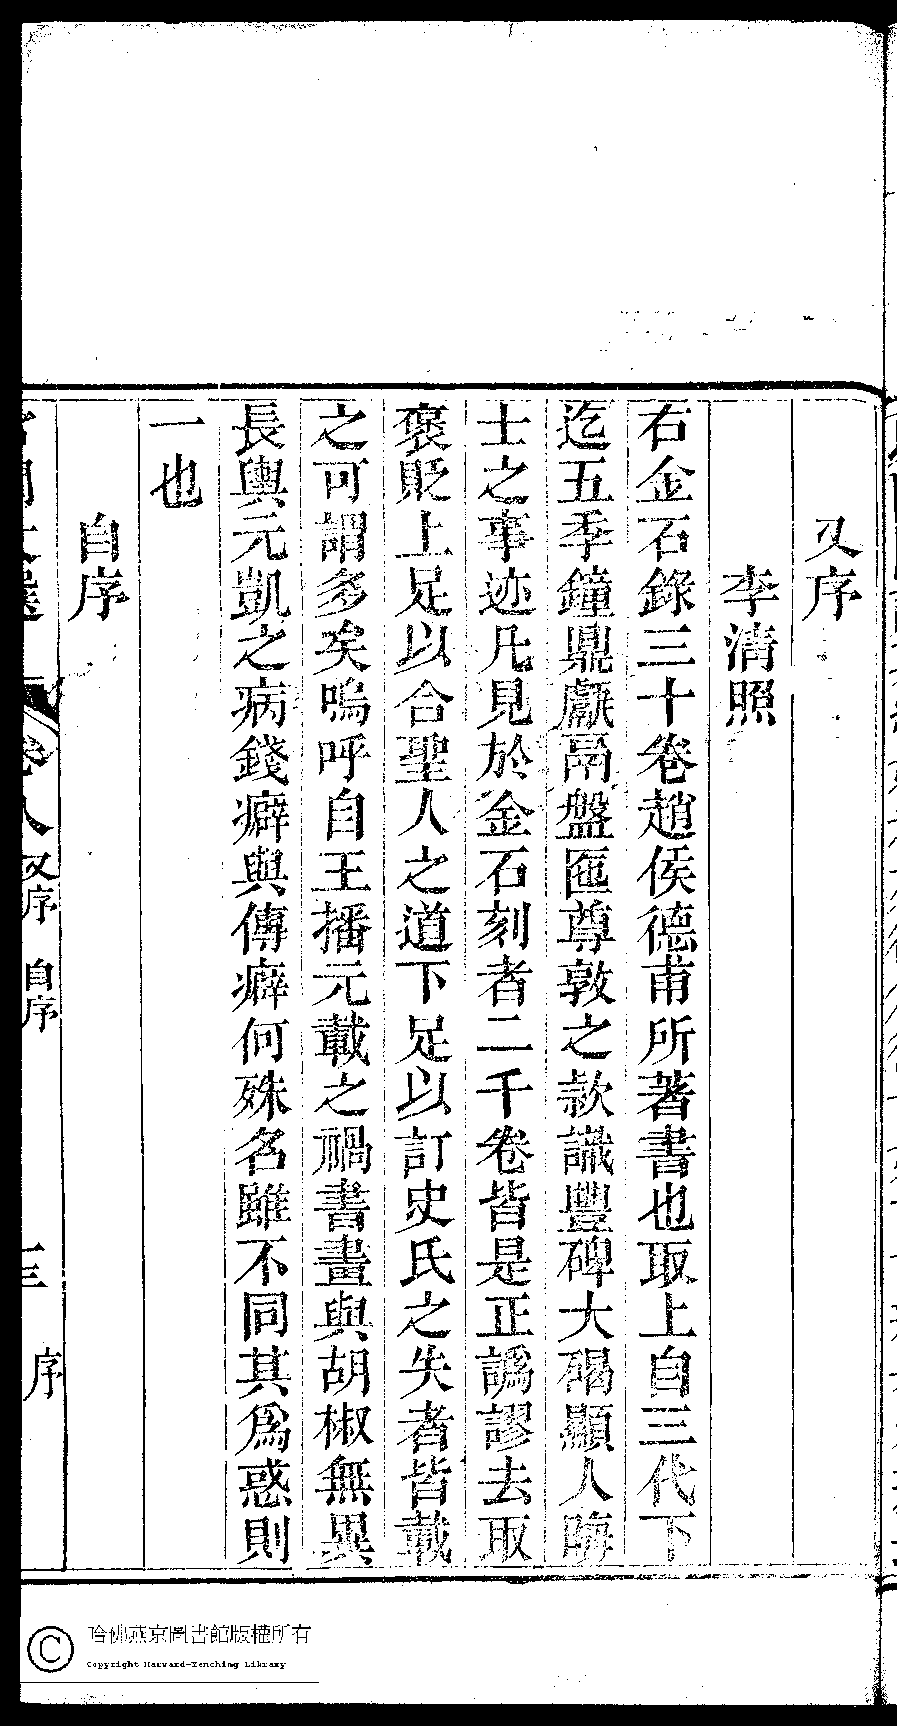 又序
李清照
右金石錄三十卷趙侯德甫所著書也取上自三代下
迄五季鐘鼎甗鬲盤匜尊敦之款識豐碑大碣顯人晦
士之事迹凡見於金石刻者二千卷皆是正譌謬去取
褒貶上足以合聖人之道下足以訂史氏之失者皆載
之可謂多矣嗚呼自王播元載之禍書畫與胡椒無異
長輿元凱之病錢癖與傳癖何殊名雖不同其爲惑則
一也
自序
卷八 又序 自序 三 序
哈佛燕京圖書館版權所有
Copyright Harvard-Yenching Library